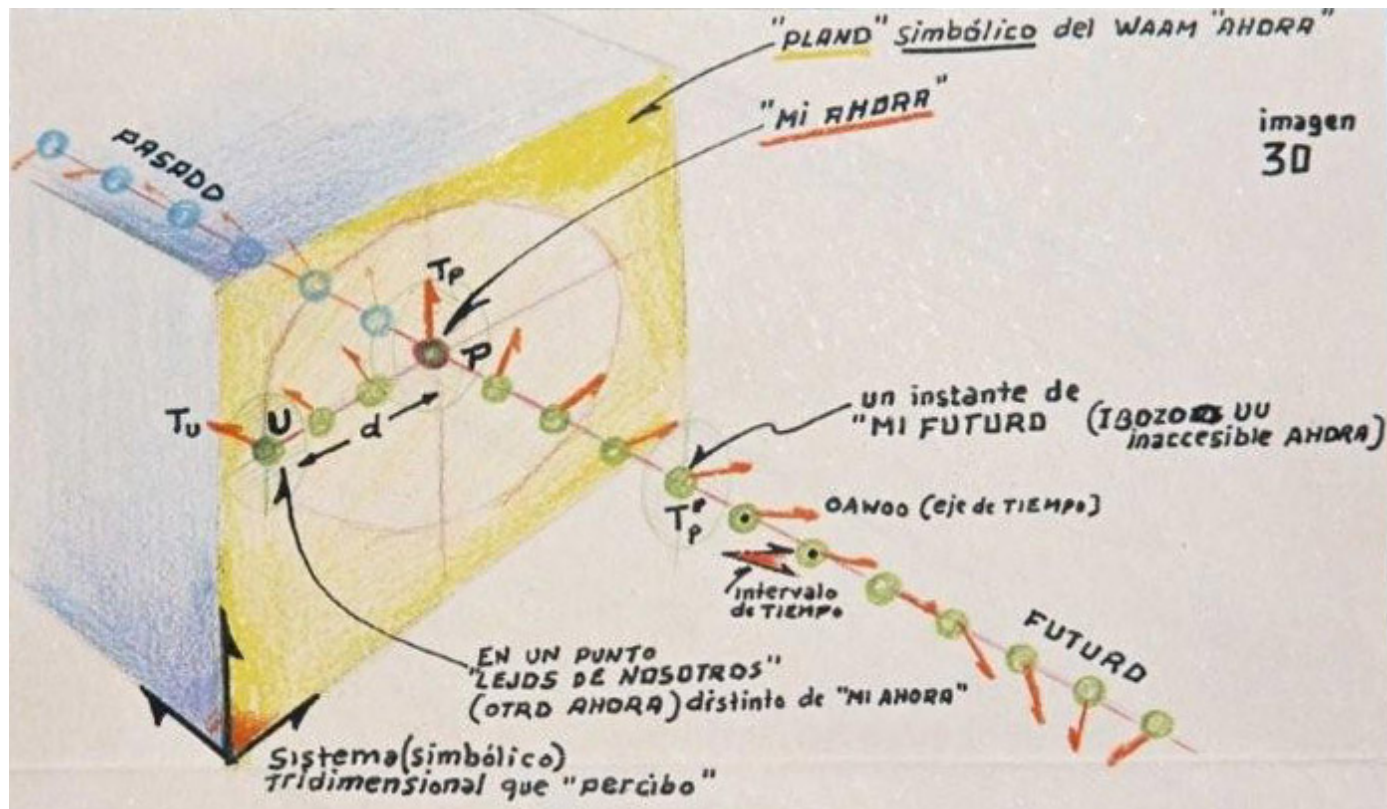 "PLANO" simbólico del WAAM "AHORA"
"Mi AHORA"
imagen
30
PASADO
Tp
P
U
Tu
d
un instante de
"MI FUTURO (IBOZOO UU
inaccesible AHORA)
Tp
OAWOO (eje de TIEMPO)
intervalo
de TIEMPO
FUTURO
EN UN PUNTO
"LEJOS DE NOSOTROS"
(OTRO AHORA) distinto de "MI AHORA"
Sistema (simbólico)
Tridimensional que "percibo"